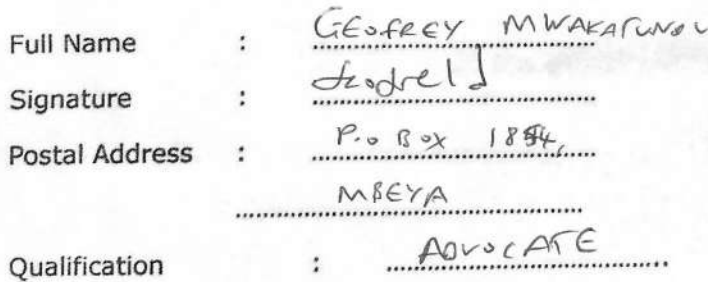 Full Name : GEOFREY
Signature :
Postal Address : P.O BOX
MBEYA
Qualification : ADVOCATE